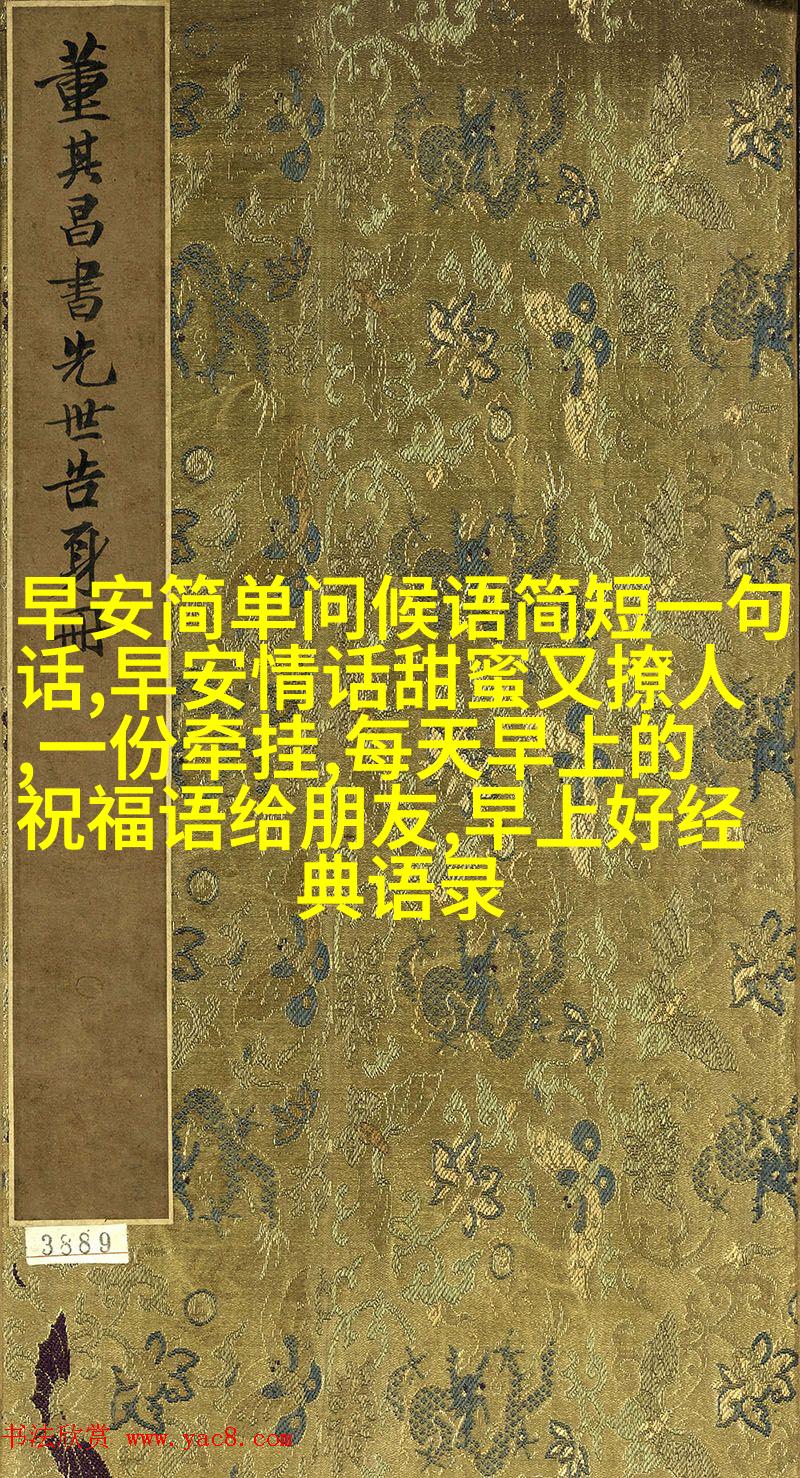 董其昌書先世告身冊
早安简单问候语简短一句
话,早安情话甜蜜又撩人
,一份牵挂,每天早上的
祝福语给朋友,早上好经
典语录
3889
书法欣赏 www.yac8.com